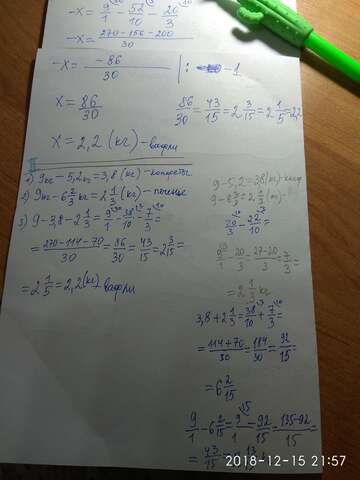 -x = 9/1 - 52/10 - 20/3
-x = 270-156-200/30
-x = -86/30 |: -1
x = 86/30
86/30 = 43/15 = 2 3/15 = 2 1/5 = 2,2
x = 2,2 (кг) - вафли
1) 9кг - 5,2кг = 3,8 (кг) - конфеты
2) 9кг - 6 2/3 кг = 2 1/3 (кг) - печенье
3) 9 - 3,8 - 2 1/3 = 9/1 - 38/10 - 7/3 =
= 270-114-70/30 = 86/30 = 43/15 = 2 3/15 =
= 2 1/5 = 2,2 (кг) вафли
9 - 5,2 = 3,8 (кг) - конф
20/3 - 22/10 =
9/1 - 20/3 = 27-20/3 = 7/3 =
= 2 1/3 кг
3,8 + 2 1/3 = 38/10 + 7/3 =
= 114+70/30 = 184/30 = 92/15 =
= 6 2/15
9/1 - 6 2/15 = 9/1 - 92/15 = 135-92/15 =
= 43/15
2018-12-15 21:57